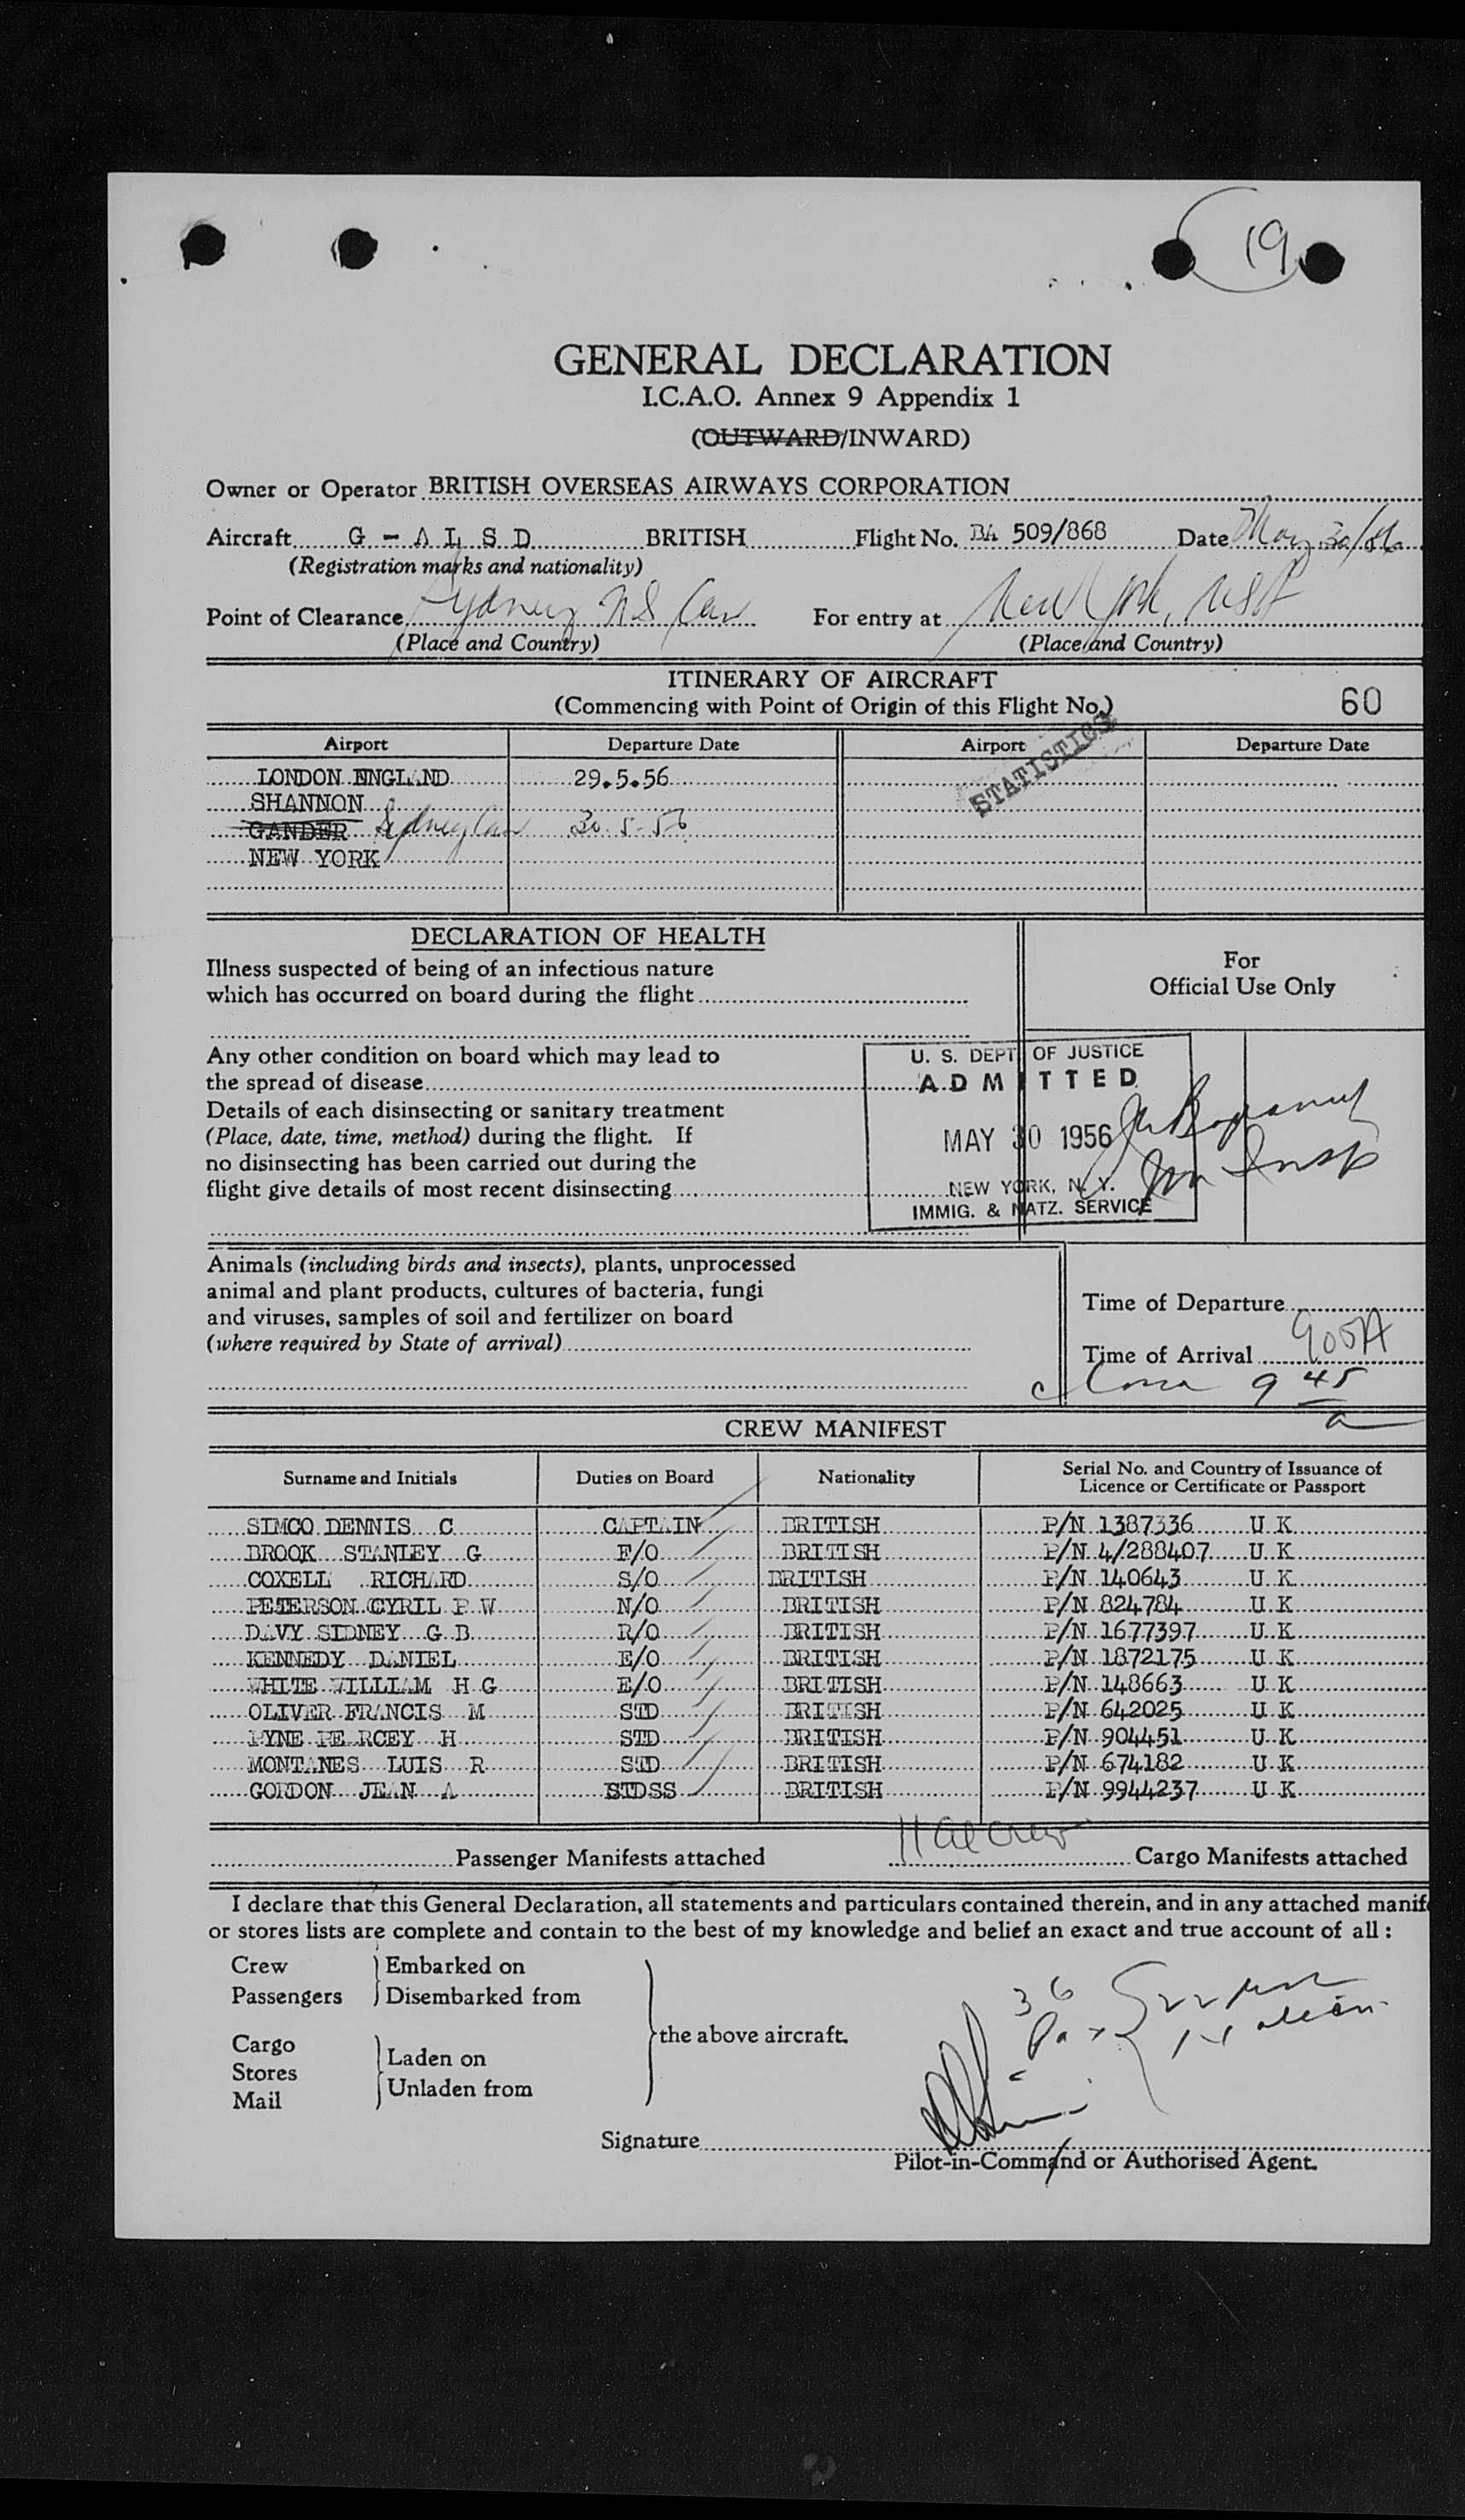 19
GENERAL DECLARATION
I.C.A.O. Annex 9 Appendix 1
(OUTWARD/INWARD)
Owner or Operator BRITISH OVERSEAS AIRWAYS CORPORATION
Aircraft G - A L S D BRITISH Flight No. BA 509/868 Date May 30/56
(Registration marks and nationality)
Point of Clearance Sydney NS Can For entry at New York, USA
(Place and Country) (Place and Country)
ITINERARY OF AIRCRAFT
(Commencing with Point of Origin of this Flight No.) 60
Airport Departure Date Airport Departure Date
STATISTICS
LONDON ENGLAND 29.5.56
SHANNON
GANDER Sydney Can 30-5-56
NEW YORK
DECLARATION OF HEALTH
Illness suspected of being of an infectious nature
which has occurred on board during the flight
For
Official Use Only
Any other condition on board which may lead to
the spread of disease
Details of each disinsecting or sanitary treatment
(Place, date, time, method) during the flight. If
no disinsecting has been carried out during the
flight give details of most recent disinsecting
U. S. DEPT OF JUSTICE
ADMITTED
MAY 30 1956
NEW YORK, N. Y.
IMMIG. & NATZ. SERVICE
Imm Insp
Animals (including birds and insects), plants, unprocessed
animal and plant products, cultures of bacteria, fungi
and viruses, samples of soil and fertilizer on board
(where required by State of arrival)
Time of Departure
Time of Arrival 905A
9 45 a
CREW MANIFEST
Surname and Initials Duties on Board Nationality Serial No. and Country of Issuance of
Licence or Certificate or Passport
SIMCO DENNIS C CAPTAIN BRITISH P/N 1387336 U K
BROOK STANLEY G F/O BRITISH P/N 4/288407 U K
COXELL RICHARD S/O BRITISH P/N 140643 U K
PETERSON CYRIL P W N/O BRITISH P/N 824784 U K
DAVY SIDNEY G B R/O BRITISH P/N 1677397 U K
KENNEDY DANIEL E/O BRITISH P/N 1872175 U K
WHITE WILLIAM H G E/O BRITISH P/N 148663 U K
OLIVER FRANCIS M STD BRITISH P/N 642025 U K
PYNE PE RCEY H STD BRITISH P/N 904451 U K
MONTANES LUIS R STD BRITISH P/N 674182 U K
GORDON JEAN A STDSS BRITISH P/N 9944237 U K
11 al crew
Passenger Manifests attached Cargo Manifests attached
I declare that this General Declaration, all statements and particulars contained therein, and in any attached manif
or stores lists are complete and contain to the best of my knowledge and belief an exact and true account of all :
Crew Embarked on
Passengers Disembarked from
the above aircraft.
Cargo
Stores
Mail
Laden on
Unladen from
36
Pax
Signature
Pilot-in-Command or Authorised Agent.